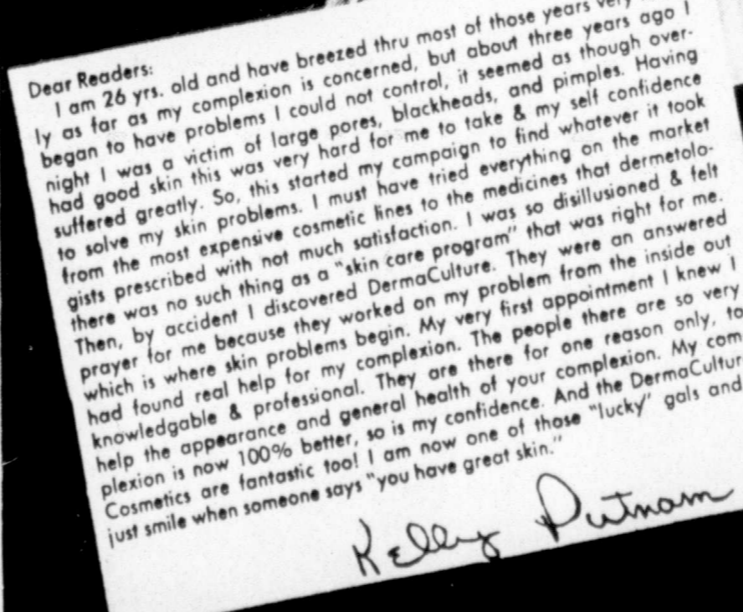 Dear Readers:
I am 26 yrs. old and have breezed thru most of those years very
ly as far as my complexion is concerned, but about three years ago I
began to have problems I could not control, it seemed as though over-
night I was a victim of large pores, blackheads, and pimples. Having
had good skin this was very hard for me to take & my self confidence
suffered greatly. So, this started my campaign to find whatever it took
to solve my skin problems. I must have tried everything on the market
from the most expensive cosmetic lines to the medicines that dermetolo-
gists prescribed with not much satisfaction. I was so disillusioned & felt
there was no such thing as a "skin care program" that was right for me.
Then, by accident I discovered DermaCulture. They were an answered
prayer for me because they worked on my problem from the inside out
which is where skin problems begin. My very first appointment I knew I
had found real help for my complexion. The people there are so very
knowledgable & professional. They are there for one reason only, to
help the appearance and general health of your complexion. My com
plexion is now 100% better, so is my confidence. And the DermaCultur
Cosmetics are fantastic too! I am now one of those "lucky" gals and
just smile when someone says "you have great skin."
Kelly Putnam